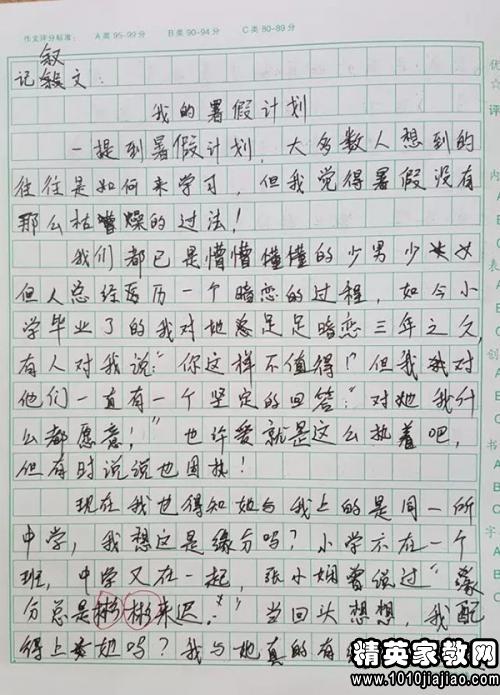 作文评分标准： A类 95-99分 B类 90-94分 C类 80-89分
优
叙
记 文：
☆
我的暑假计划
评
一提到暑假计划，大多数人想到的
往往是如何来学习，但我觉得暑假没有
内
那么枯燥的过法！
我们都已是懵懵懂懂的少男少女
表
但人总经历一个暗恋的过程，如今小
学毕业了的我对她足足暗恋三年之久
有人对我说："你这样不值得！"但我对
创
他们一直有一个坚定的回答："对她我什
么都愿意！"也许爱就是这么执着吧，
书
但有时说说也固执！
现在我也得知她与我上的是同一所
中学，我想这是缘分吗？小学不在一个
字
班，中学又在一起，张小娴曾说过"缘
分总是彬彬来迟。"当回头想想，我配
得上她吗？我与她真的有
精英家教网
www.1010jiajiao.com